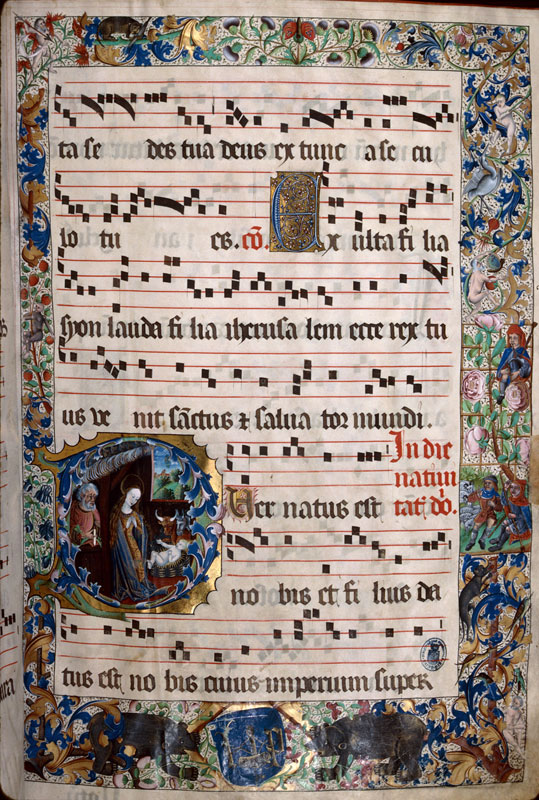 ta se des tua deus ex tunc a se cu
lo tu es. cō. Exulta fi lia
syon lauda fi lia iherusa lem ecce rex tu
us ve nit sāctus & salua tor mundi.
In die
natiui
tat̄ dō.
Puer natus est
no bis et fi lius da
tus est no bis cuius imperium super